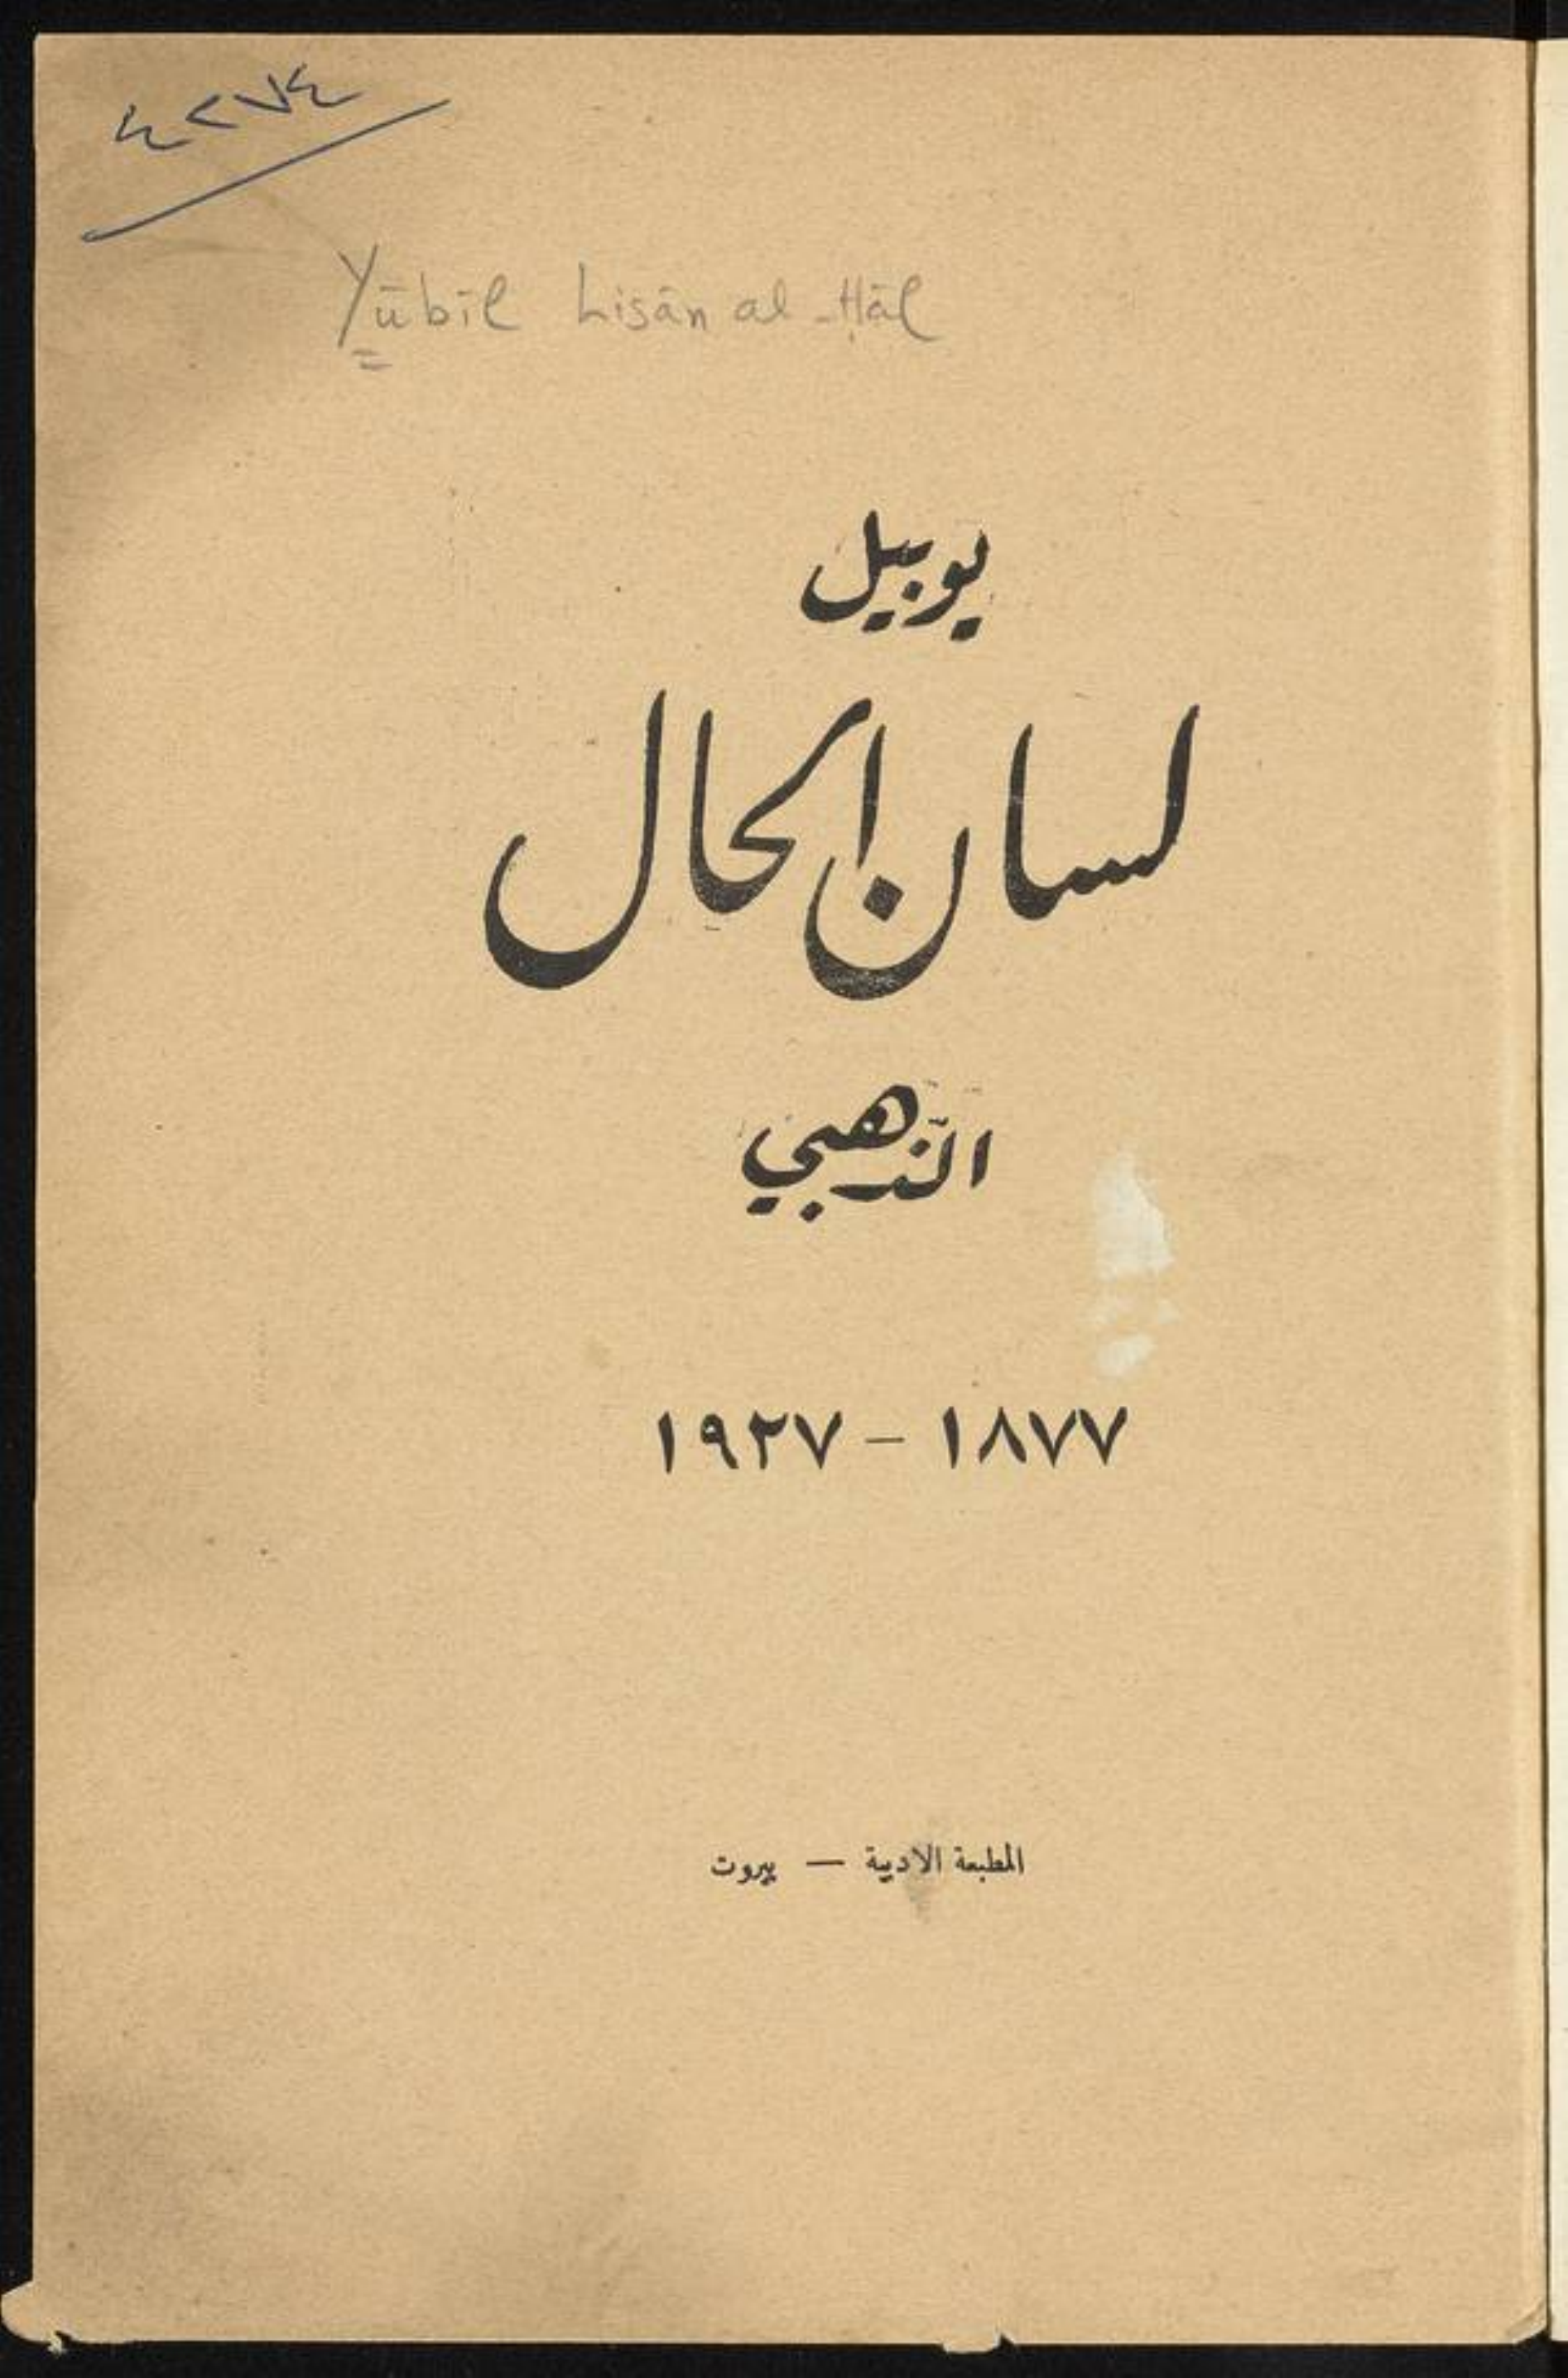 ٤٢٧٤
Yūbīl Lisān al-Ḥāl
يوبيل
لسان الحال
الذّهبي
١٨٧٧ – ١٩٢٧
المطبعة الادبية — بيروت